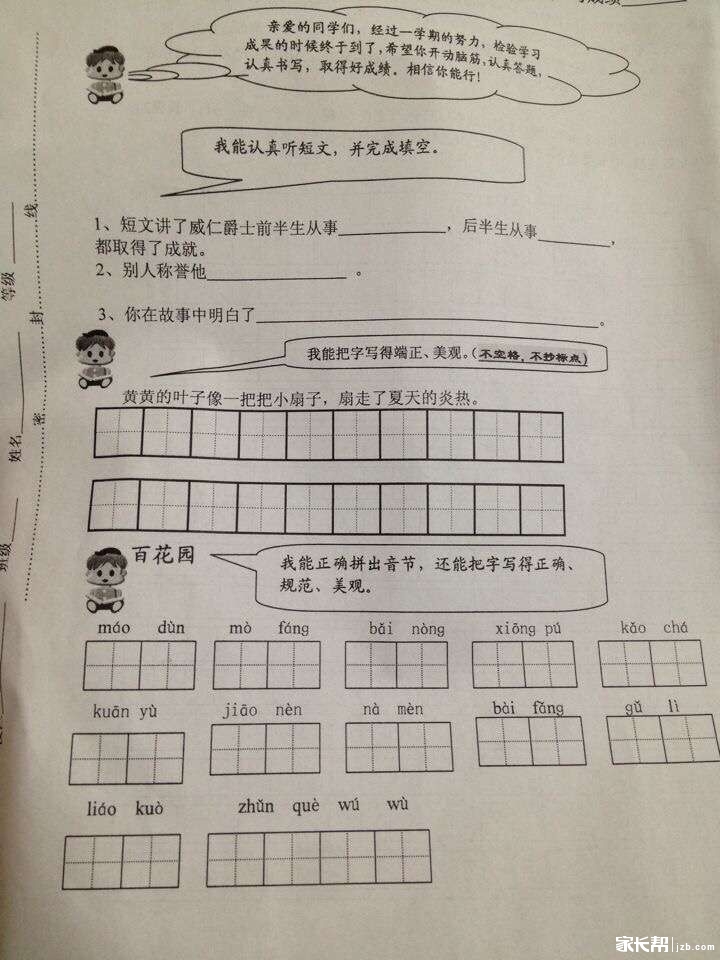 亲爱的同学们，经过一学期的努力，检验学习
成果的时候终于到了，希望你开动脑筋、认真答题，
认真书写，取得好成绩。相信你能行！
我能认真听短文，并完成填空。
1、短文讲了威仁爵士前半生从事__________，后半生从事_______，
都取得了成就。
2、别人称誉他______________。
3、你在故事中明白了__________________________________。
我能把字写得端正、美观。（不空格，不抄标点）
黄黄的叶子像一把把小扇子，扇走了夏天的炎热。
百花园
我能正确拼出音节，还能把字写得正确、
规范、美观。
máo dùn mò fáng bǎi nòng xiōng pú kǎo chá
kuān yù jiāo nèn nà mèn bài fǎng gǔ lì
liáo kuò zhǔn què wú wù
线
封
密
等级
姓名
班级
家长帮 jzb.com